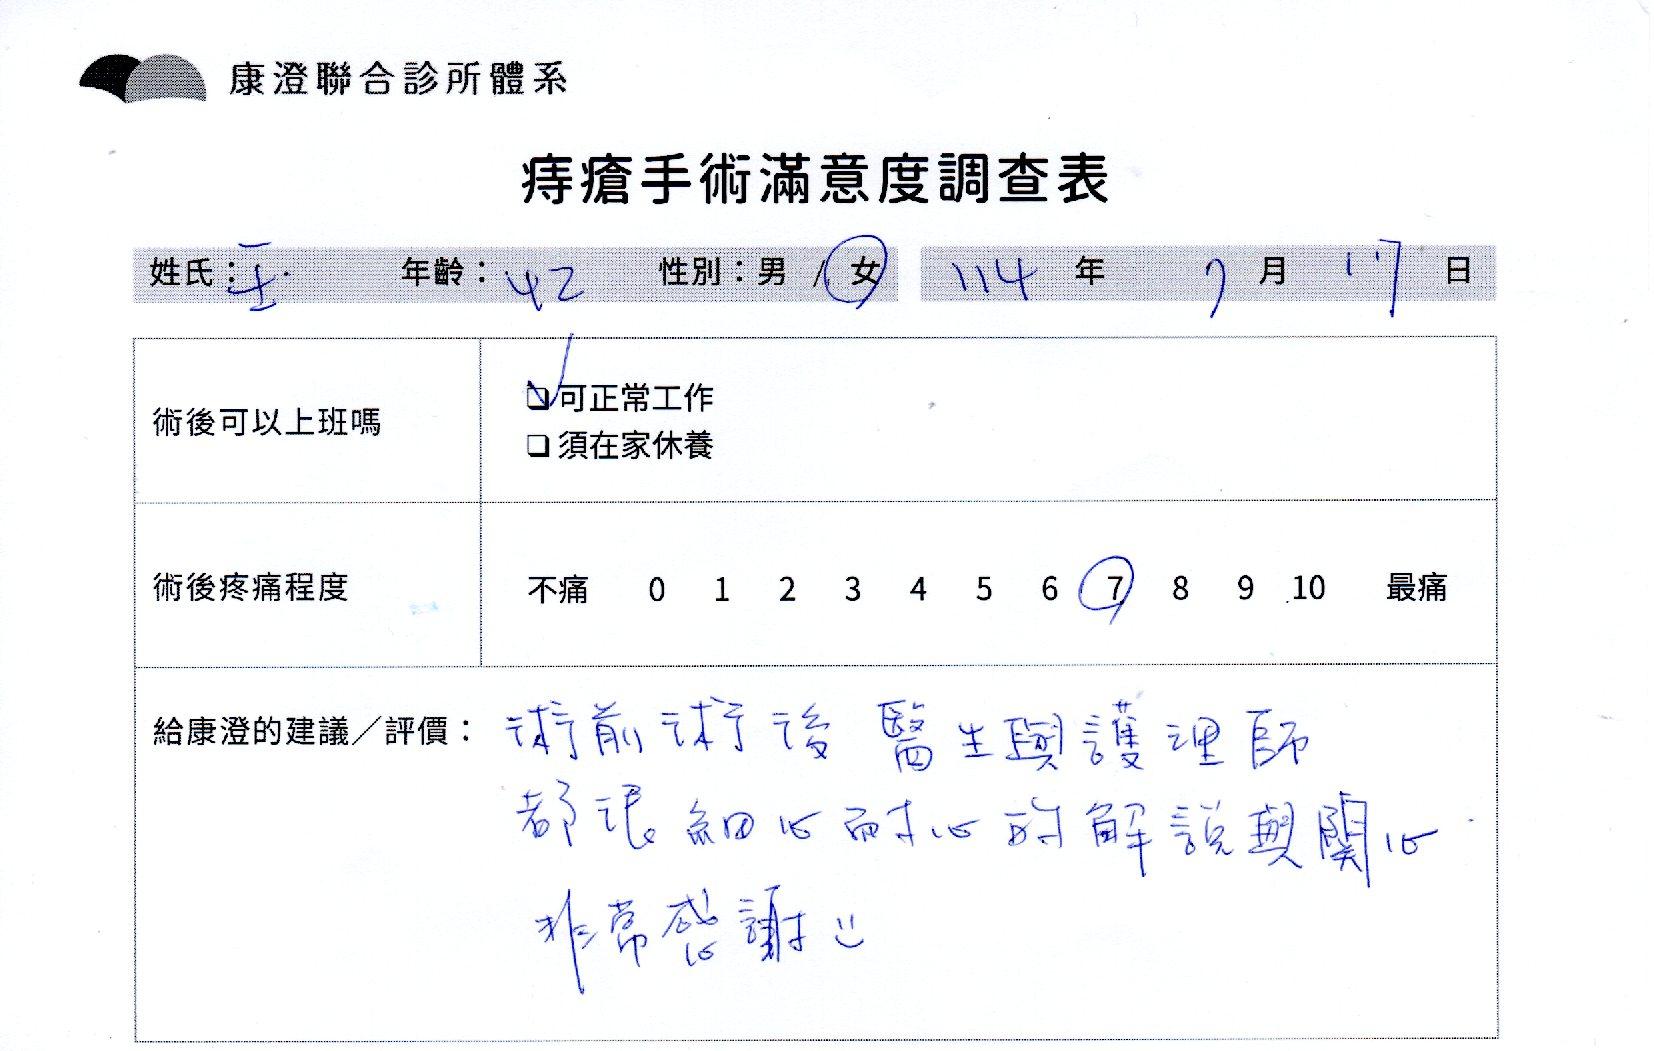 康澄聯合診所體系
痔瘡手術滿意度調查表
姓氏：王 年齡：42 性別：男 / 女 114 年 7 月 17 日
術後可以上班嗎
可正常工作
須在家休養
術後疼痛程度
不痛 0 1 2 3 4 5 6 7 8 9 10 最痛
給康澄的建議／評價：術前術後 醫生與護理師
都很細心耐心的解說與關心
非常感謝